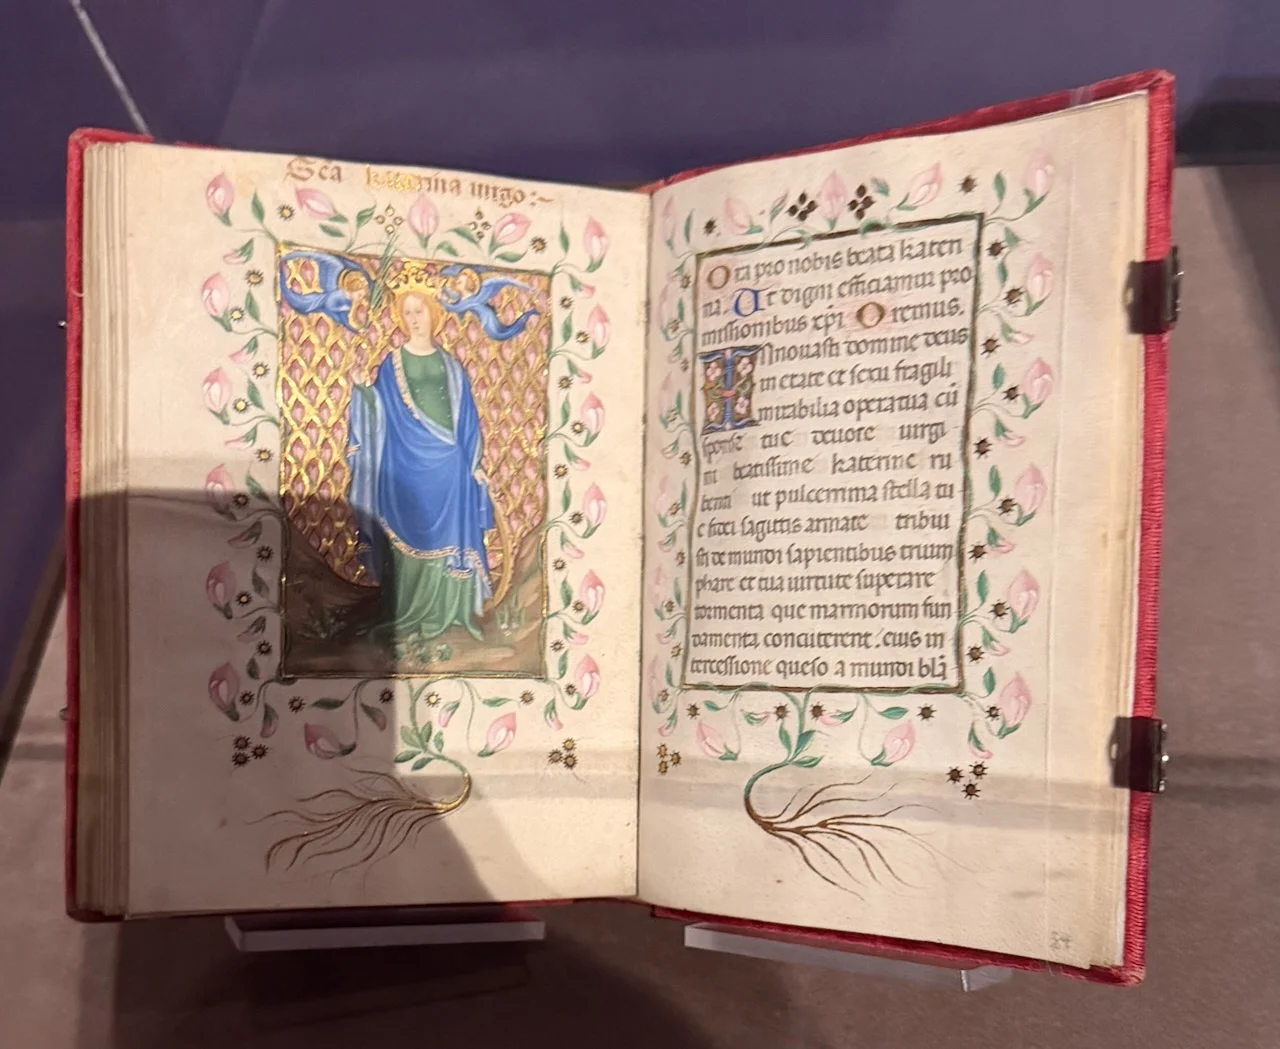 Sca katerina uirgo:~
Ora pro nobis beata kateri
na. Ut digni efficiamur pro
missionibus xpi Oremus.
Innouasti domine deus
in etate et sexu fragili
mirabilia operatiua cū
sponse tue deuote uirgi
ni beatissime katerine ru
benti ut pulcemma stella tu
e fidei sagittis armate tribui
sti de mundi sapientibus trium
phare et tua uirtute superare
tormenta que marmorum fun
damenta concuterent. eius in
tercessione queso a mundi blā